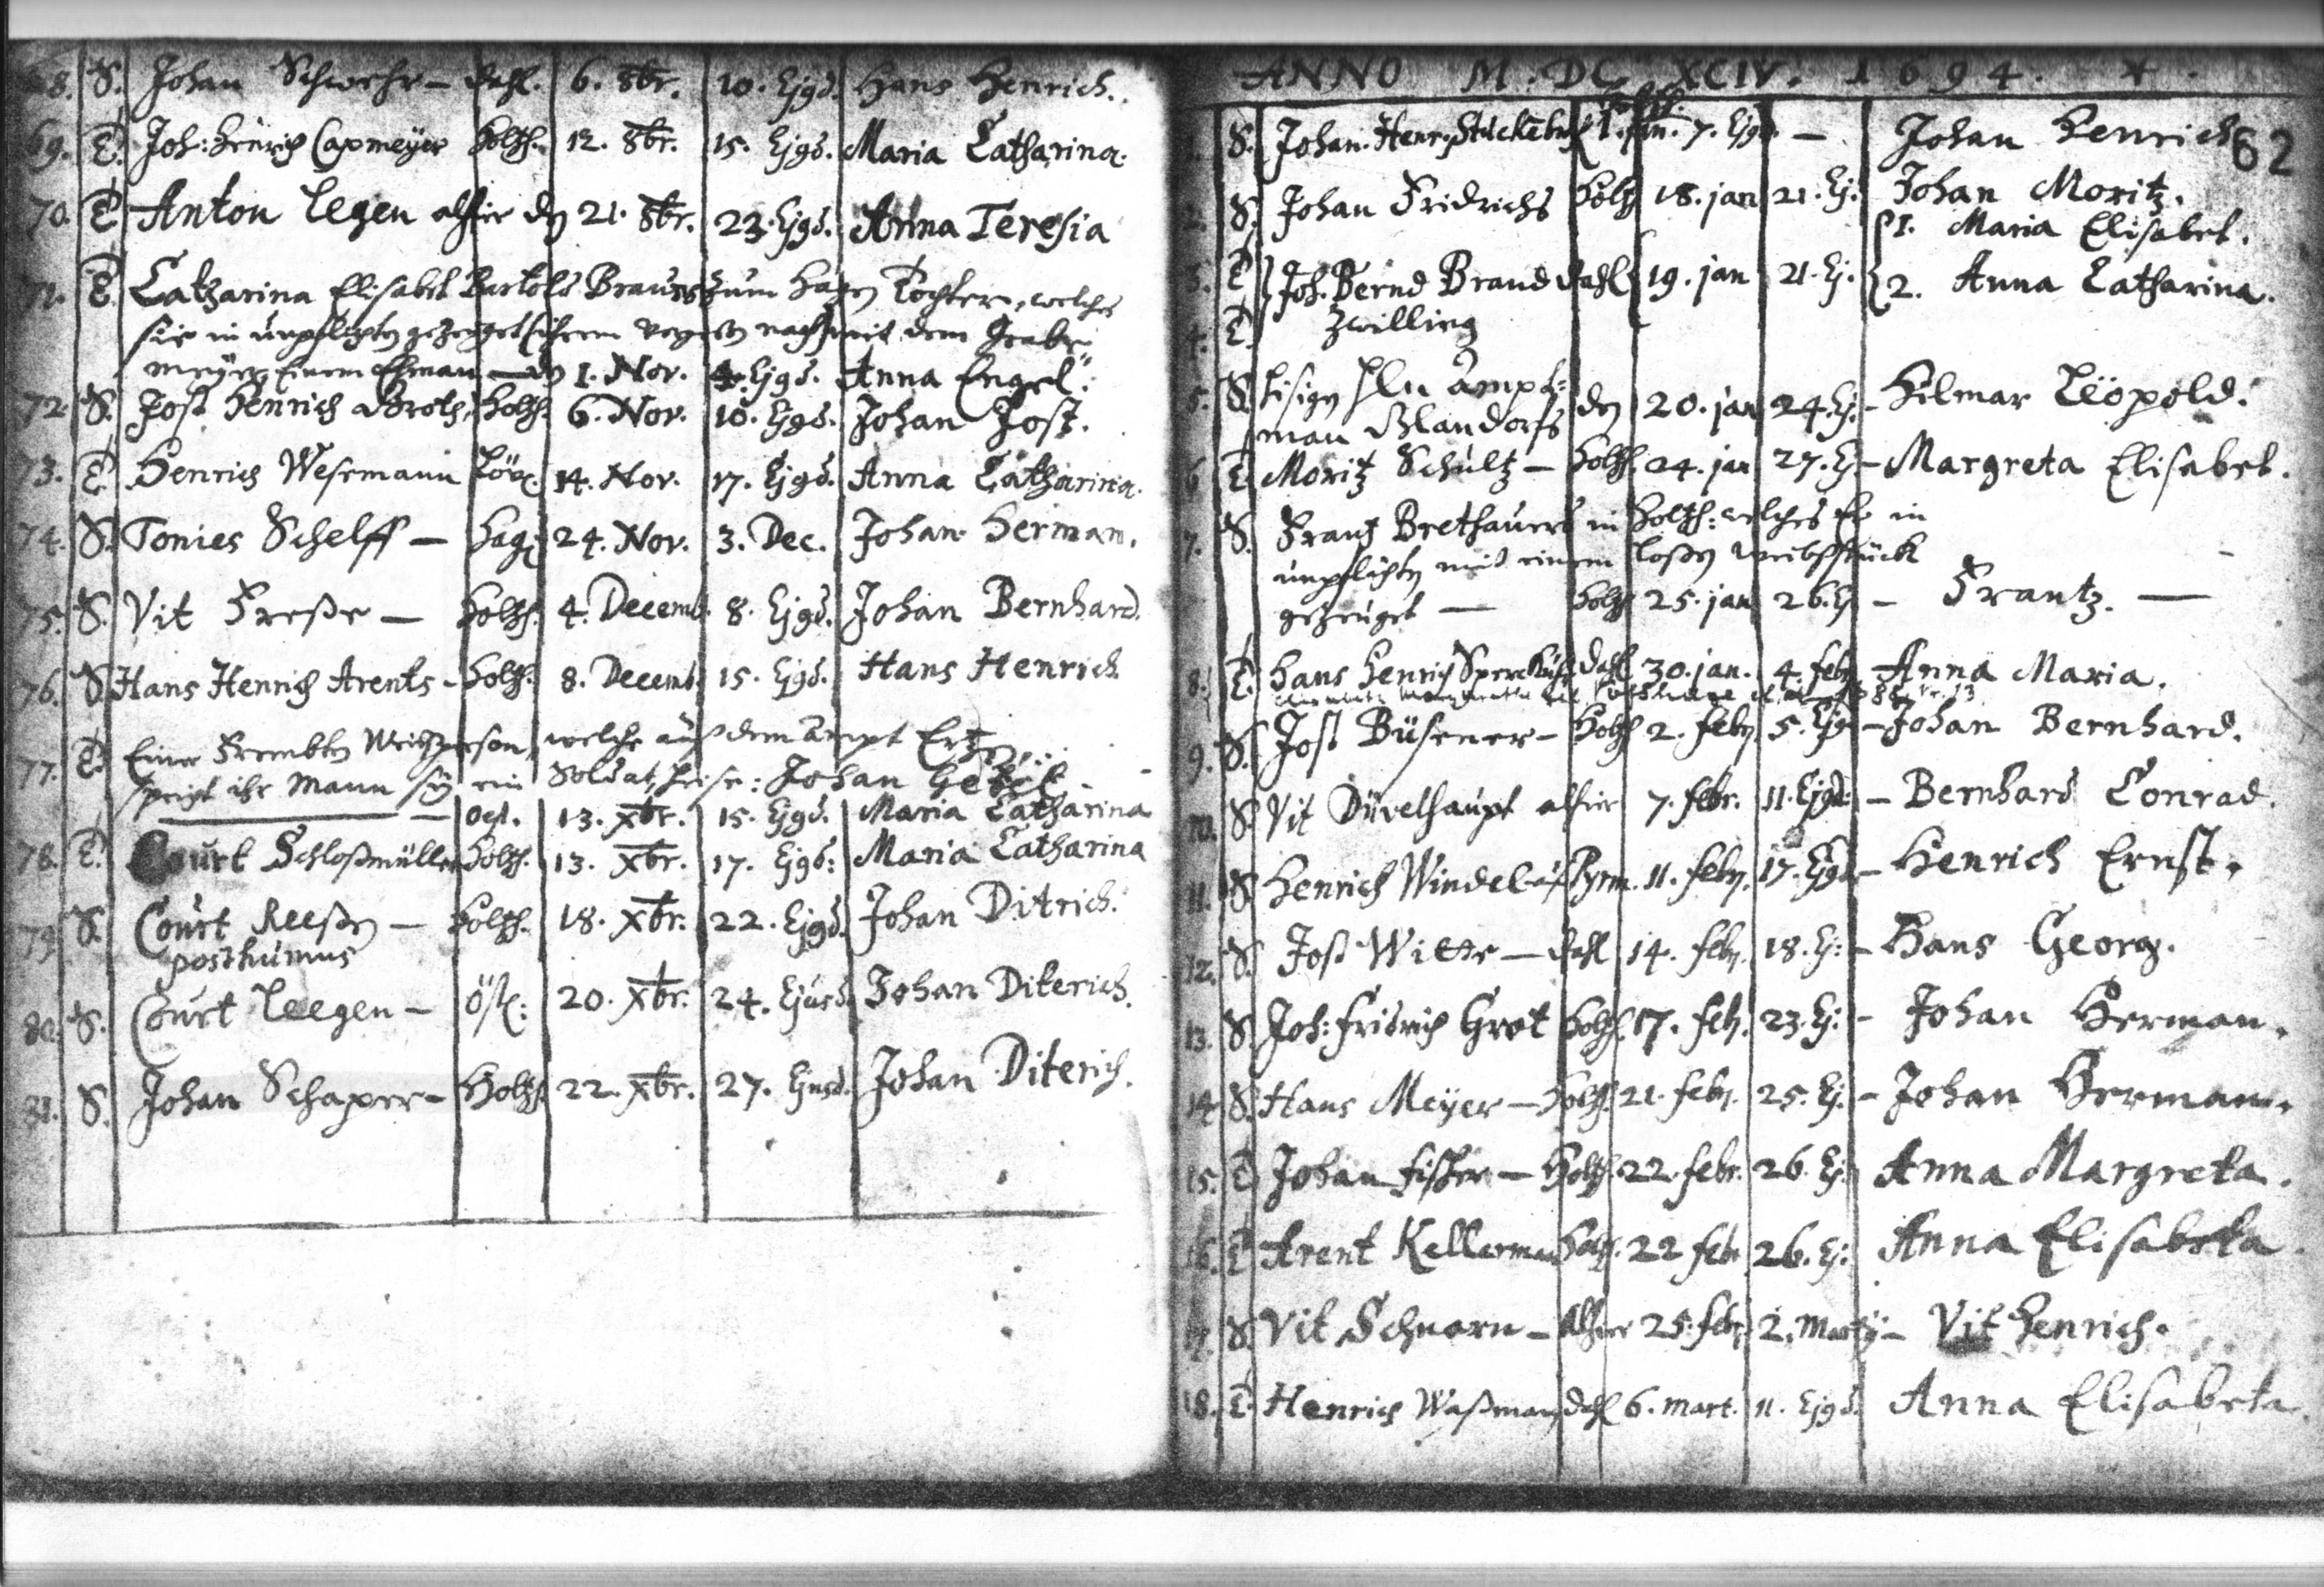 68. S. Johan Schwefr - Dahl. 6. 8br. 10. Ejgd. Hans Henrich.
69. T. Joh: Henrich Capmeyer Holtzh. 12. 8br. 15. Ejgd. Maria Catharina.
70. T. Anton Tegen alhir den 21. 8br. 23. Ejgd. Anna Teresia
71. T. Catharina Elisabet Bartols Brauns zum Hagen Tochter, welches
sie in unpflichten gezeuget ihrem vorgeben nach mit dem
meyer, einem Ehman - den 1. Nov. 4. Ejgd. Anna Engel.
72. S. Jost Henrich Holtzh. 6. Nov. 10. Ejgd. Johan Jost.
73. T. Henrich Wesemann Löw. 14. Nov. 17. Ejgd. Anna Catharina.
74. S. Tonies Schelff - Hag. 24. Nov. 3. Dec. Johan Herman.
75. S. Vit Freße - Holtzh. 4. Decemb. 8. Ejgd. Johan Bernhard.
76. S. Hans Henrich Arents - Holtzh. 8. Decemb. 15. Ejgd. Hans Henrich
77. T. Einer Frembten Weibsperson, welche auß dem Ampt
spricht ihr Mann sey ein Soldat, heiße: Johan
- Oest. 13. Xbr. 15. Ejgd. Maria Catharina
78. T. Court Schloßmüller Holtzh. 13. Xbr. 17. Ejgd: Maria Catharina
79. S. Court Reeßen - Holtzh. 18. Xbr. 22. Ejgd. Johan Ditrich.
posthumus
80. S. Court Teegen - Öst: 20. Xbr. 24. Ejusd. Johan Diterich.
81. S. Johan Schaper - Holtzh. 22. Xbr. 27. Ejusd. Johan Diterich.
ANNO M. DC. XCIV. 1694. *
62
S. Johan Henr. 1. jan. 7. Ejgd. - Johan Henrich
2. S. Johan Fridrichs Holtzh 18. jan 21. Ej. Johan Moritz.
3. T. Joh. Bernd Brand Dahl 19. jan 21. Ej. { 1. Maria Elisabet.
4. T. Zwilling 2. Anna Catharina.
5. S. Hisigen Hln Ampt-
man Blandorfs den 20. jan 24. Ej. - Hilmar Leopold.
6. T. Moritz Schultz - Holtzh. 24. jan 27. Ej - Margreta Elisabet.
7. S. Frantz Brethauers in Holtzh: welches Er in
unpflichten mit einem loßen weibsstück
gezeuget - Holtzh 25. jan 26. Ej - Frantz. -
8. T. Hans Henrich Dahl 30. jan. 4. feb. - Anna Maria.
9. S. Jost Büsener - Holtzh 2. feb. 5. Ejgd - Johan Bernhard.
10. S. Vit Düvelhaupt alhier 7. febr. 11. Ejgd: - Bernhard Conrad.
11. S. Henrich Pyrm. 11. feb. 17. Ejgd - Henrich Ernst.
12. S. Jost Witte - Dahl 14. feb. 18. Ej: - Hans Georg.
13. S. Joh: Fridrich Grot Holtzh. 17. feb. 23. Ej. - Johan Herman.
14. S. Hans Meyer - Holtzh. 21. feb. 25. Ej. - Johan Herman.
15. T. Johan Fisher - Holtzh. 22. febr. 26. Ej. Anna Margreta.
16. T. Arent Kellerman Holtzh. 22 febr 26. Ej: Anna Elisabeta.
17. S. Vit Schnarn - Alhier 25. feb. 2. Martij - Vit Henrich.
18. T. Henrich Waßman Dahl 6. Mart. 11. Ejgd. Anna Elisabeta.